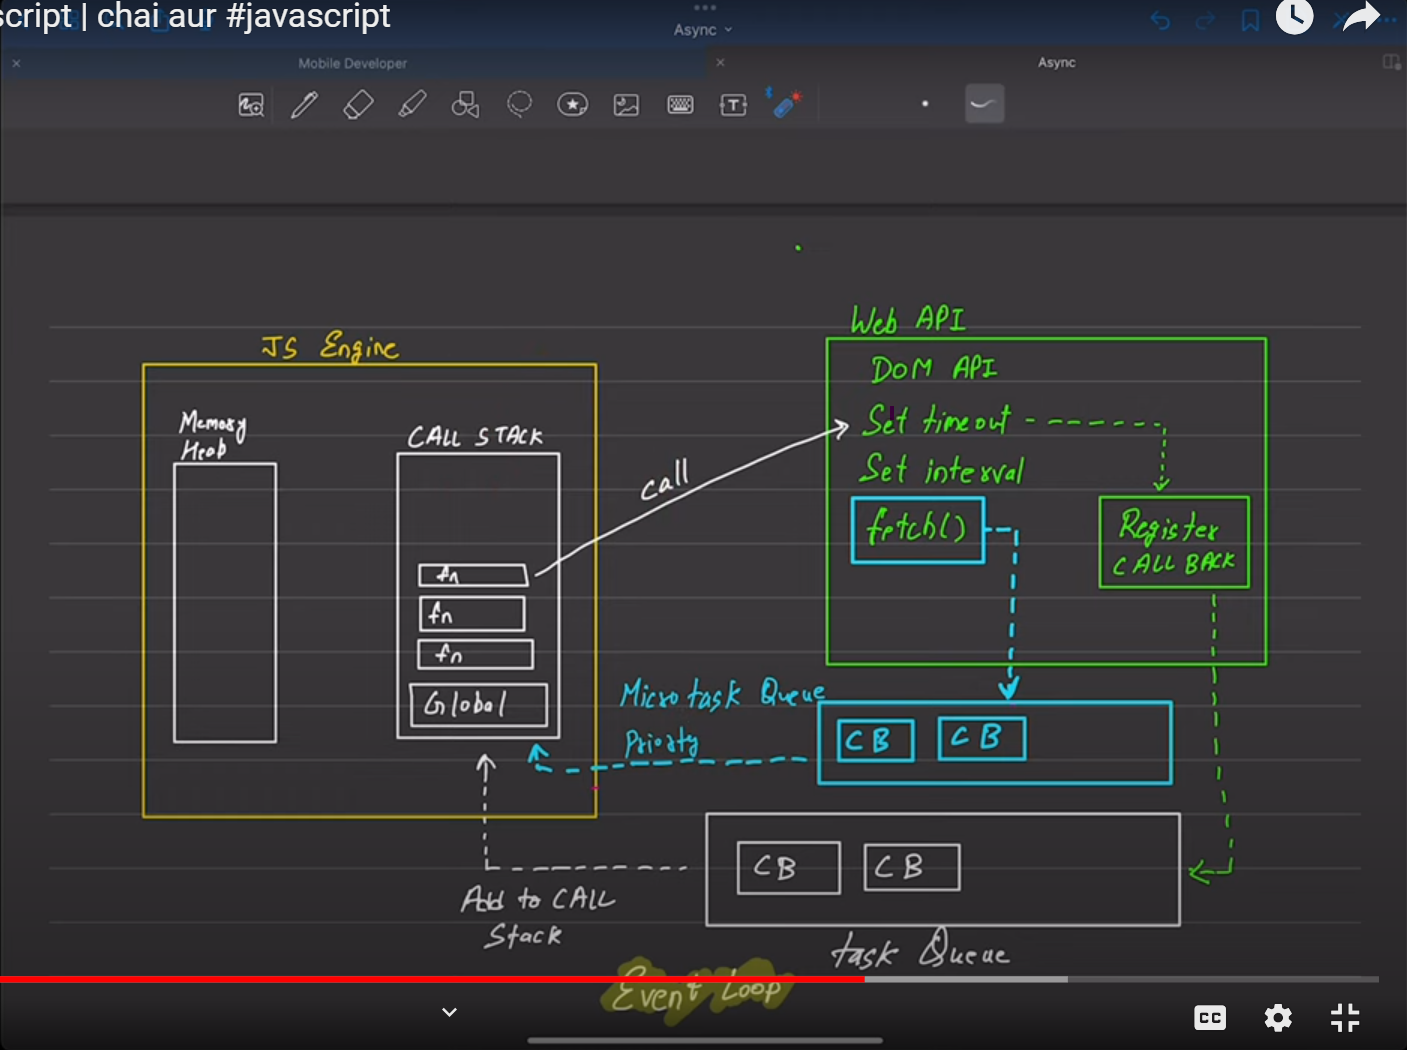 script | chai aur #javascript
Async
Mobile Developer
Async
T
JS Engine
Memory
Heap
CALL STACK
fn
fn
fn
Global
call
Web API
DOM API
Set timeout
Set interval
fetch()
Register
CALL BACK
Micro task Queue
Priority
CB
CB
CB
CB
Add to CALL
Stack
task Queue
Event Loop
CC